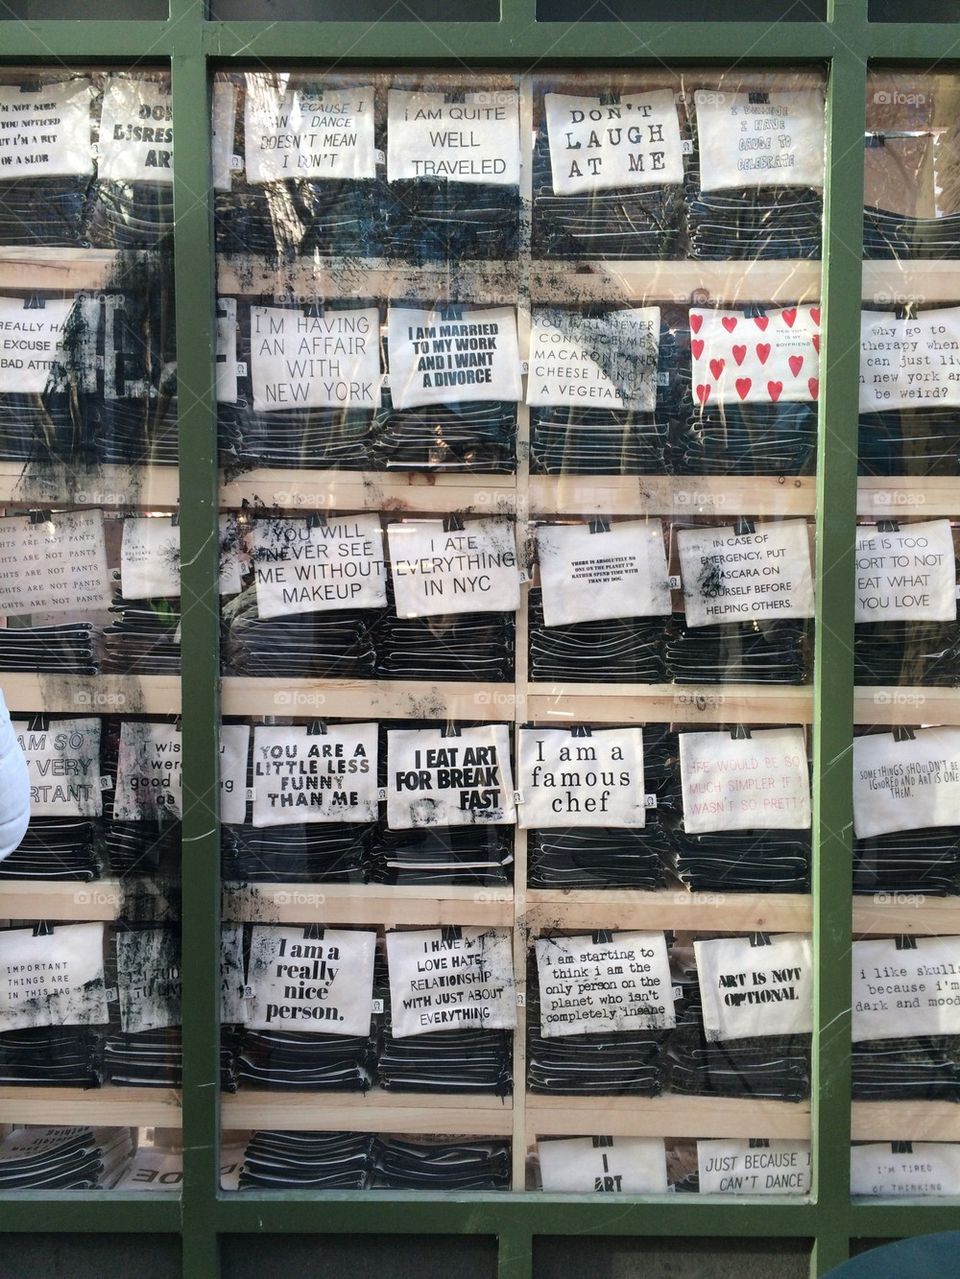 I'M NOT SURE
YOU NOTICED
BUT I'M A BIT
OF A SLOB
DON'
DISRES
ART
JUST BECAUSE I
CAN'T DANCE
DOESN'T MEAN
I DON'T
I AM QUITE
WELL
TRAVELED
DON'T
LAUGH
AT ME
I HAVE
CAUSE TO
CELEBRATE
REALLY HA
EXCUSE F
BAD ATTIT
I'M HAVING
AN AFFAIR
WITH
NEW YORK
I AM MARRIED
TO MY WORK
AND I WANT
A DIVORCE
YOU WILL NEVER
CONVINCE ME
MACARONI AND
CHEESE IS NOT
A VEGETABLE
NEW YORK
IS MY
BOYFRIEND
why go to
therapy when
can just liv
n new york an
be weird?
GHTS ARE NOT PANTS
GHTS ARE NOT PANTS
GHTS ARE NOT PANTS
GHTS ARE NOT PANTS
GHTS ARE NOT PANTS
YOU WILL
NEVER SEE
ME WITHOUT
MAKEUP
I ATE
EVERYTHING
IN NYC
THERE IS ABSOLUTELY NO
ONE ON THE PLANET I'D
RATHER SPEND TIME WITH
THAN MY DOG.
IN CASE OF
EMERGENCY, PUT
MASCARA ON
YOURSELF BEFORE
HELPING OTHERS.
LIFE IS TOO
SHORT TO NOT
EAT WHAT
YOU LOVE
AM SO
VERY
RTANT
i wish you
were
good looking
as
YOU ARE A
LITTLE LESS
FUNNY
THAN ME
I EAT ART
FOR BREAK
FAST
I am a
famous
chef
LIFE WOULD BE SO
MUCH SIMPLER IF I
WASN'T SO PRETTY
SOME THINGS SHOULDN'T BE
IGNORED AND ART IS ONE
THEM.
IMPORTANT
THINGS ARE
IN THIS BAG
I am a
really
nice
person.
I HAVE A
LOVE HATE
RELATIONSHIP
WITH JUST ABOUT
EVERYTHING
i am starting to
think i am the
only person on the
planet who isn't
completely insane
ART IS NOT
OPTIONAL
i like skulls
because i'm
dark and mood
I
ART
JUST BECAUSE I
CAN'T DANCE
I'M TIRED
OF THINKING
foap